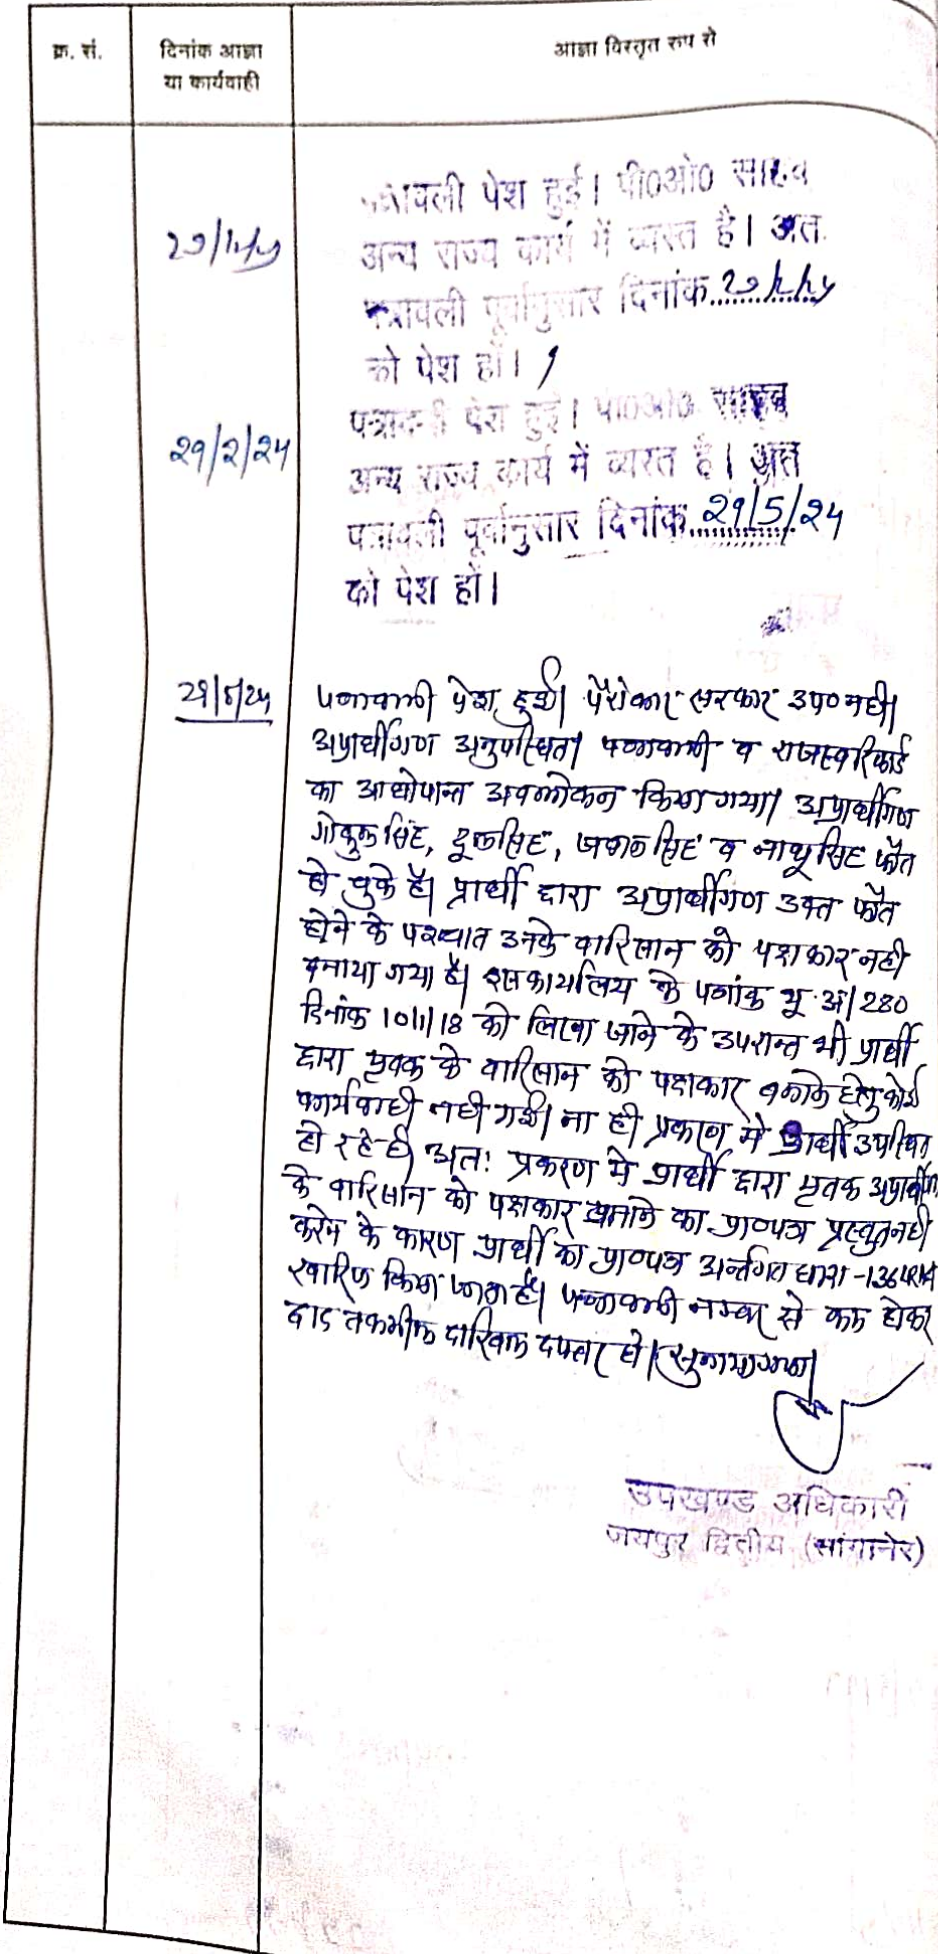 क्र. सं.
दिनांक आज्ञा
या कार्यवाही
आज्ञा विस्तृत रूप से
पत्रावली पेश हुई। पी0ओ0 साहब
अन्य राज्य कार्य में व्यस्त है। अत
पत्रावली पूर्वानुसार दिनांक
को पेश हों।
29/2/24
पत्रावली पेश हुई। पी0ओ0 साहब
अन्य राज्य कार्य में व्यस्त है। अत
पत्रावली पूर्वानुसार दिनांक 29/5/24
को पेश हों।
29/5/24
पत्रावली पेश हुई। पैरोकार सरकार उप० नही।
अप्रार्थीगण अनुपस्थित। पत्रावली व राजस्व रिकार्ड
का आधोपान्त अवलोकन किया गया। अप्रार्थीगण
गोकुल सिंह, दूलसिंह, व नाथूसिंह फौत
हो चुके है। प्रार्थी द्वारा अप्रार्थीगण उक्त फौत
होने के पश्चात उनके वारिसान को पक्षकार नही
बनाया गया है। इस कार्यालय के पत्रांक भू.अ/280
दिनांक 10/1/18 को लिखे जाने के उपरान्त भी प्रार्थी
द्वारा मृतक के वारिसान को पक्षकार बनाने हेतु कोई
कार्यवाही नही गई। ना ही प्रकरण मे प्रार्थी उपस्थित
हो रहे है। अतः प्रकरण मे प्रार्थी द्वारा मृतक अप्रार्थीगण
के वारिसान को पक्षकार बनाने का प्रा०पत्र प्रस्तुत नही
करने के कारण प्रार्थी का प्रा०पत्र अर्न्तगत धारा-136 LRA
खारिज किया जाता है। पत्रावली नम्बर से कम होकर
बाद तकमील दाखिल दफ्तर हो। सुनाया गया।
उपखण्ड अधिकारी
जयपुर द्वितीय (सांगानेर)